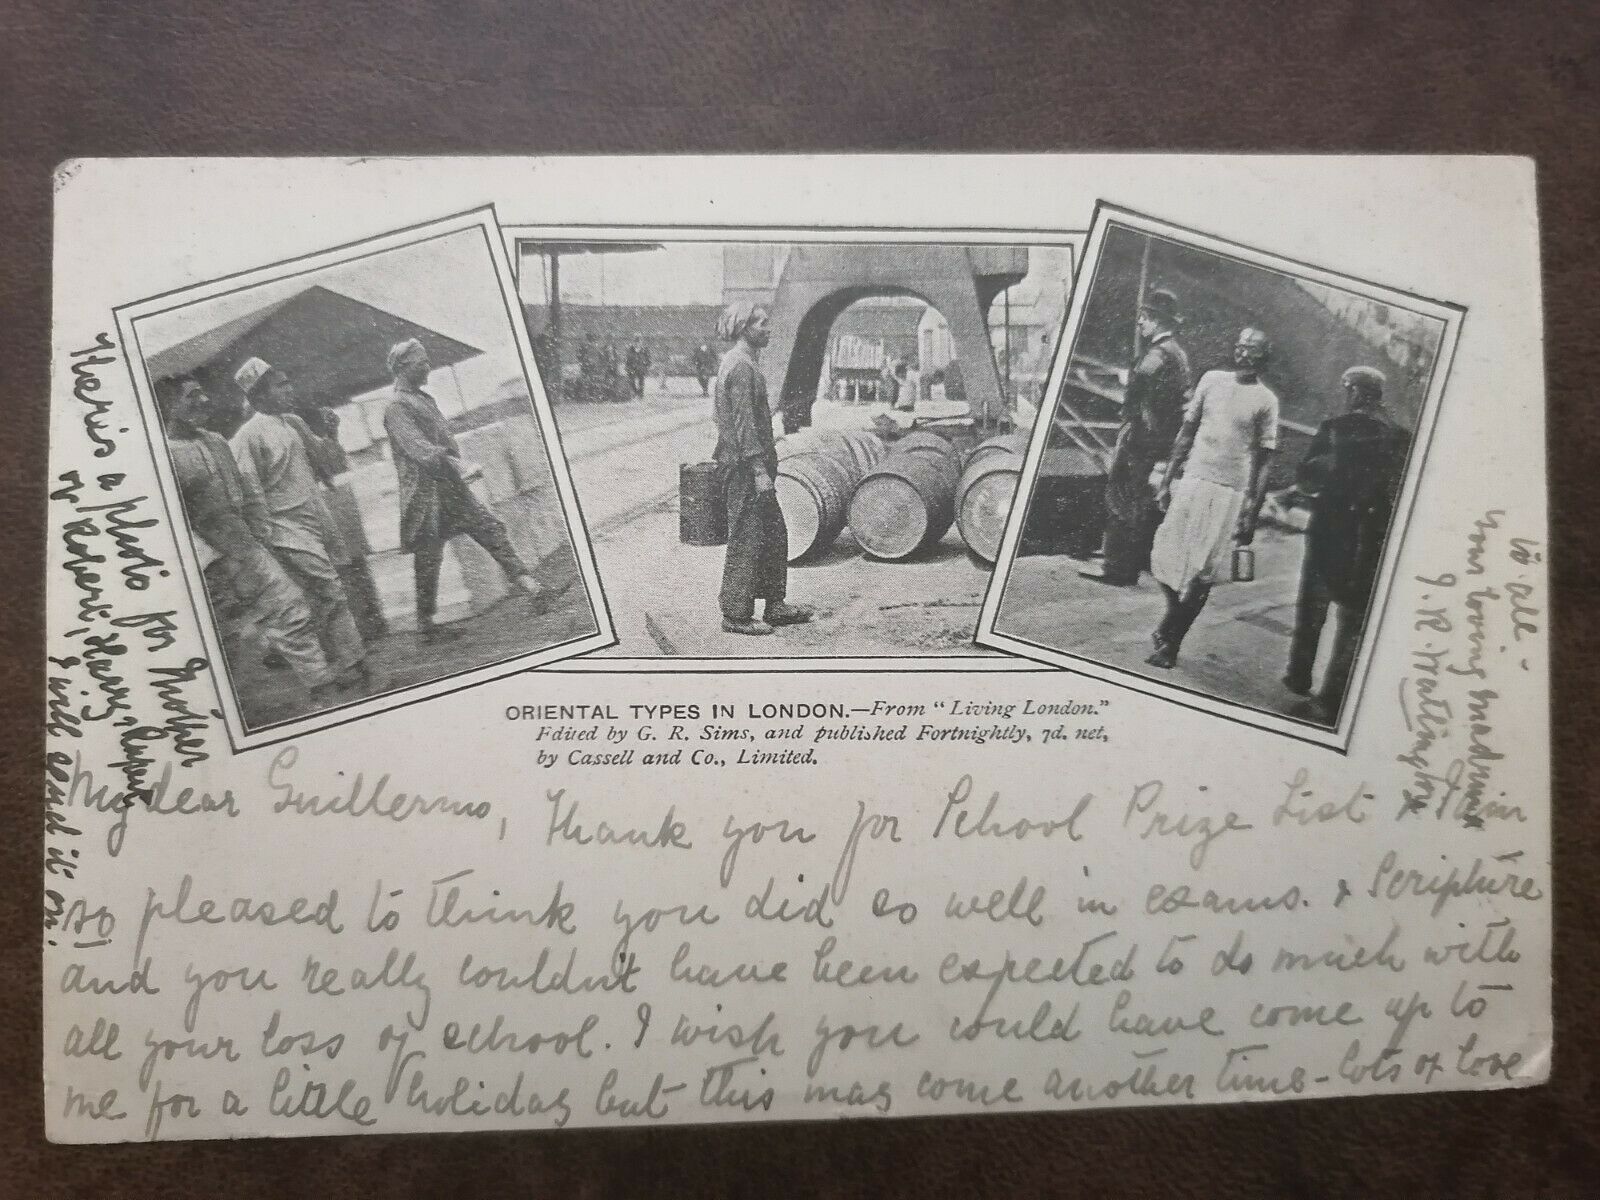 ORIENTAL TYPES IN LONDON.—From "Living London."
Edited by G. R. Sims, and published Fortnightly, 7d. net,
by Cassell and Co., Limited.
My dear Guillermo, Thank you for School Prize List & I am
so pleased to think you did so well in exams. & Scripture
and you really couldn't have been expected to do much with
all your loss of school. I wish you could have come up to
me for a little holiday but this may come another time - lots of love
to all -
Your loving
J. R. Watlington
Here is a photo for Mother
of Robert, Harry, Rupert
I will send it on.